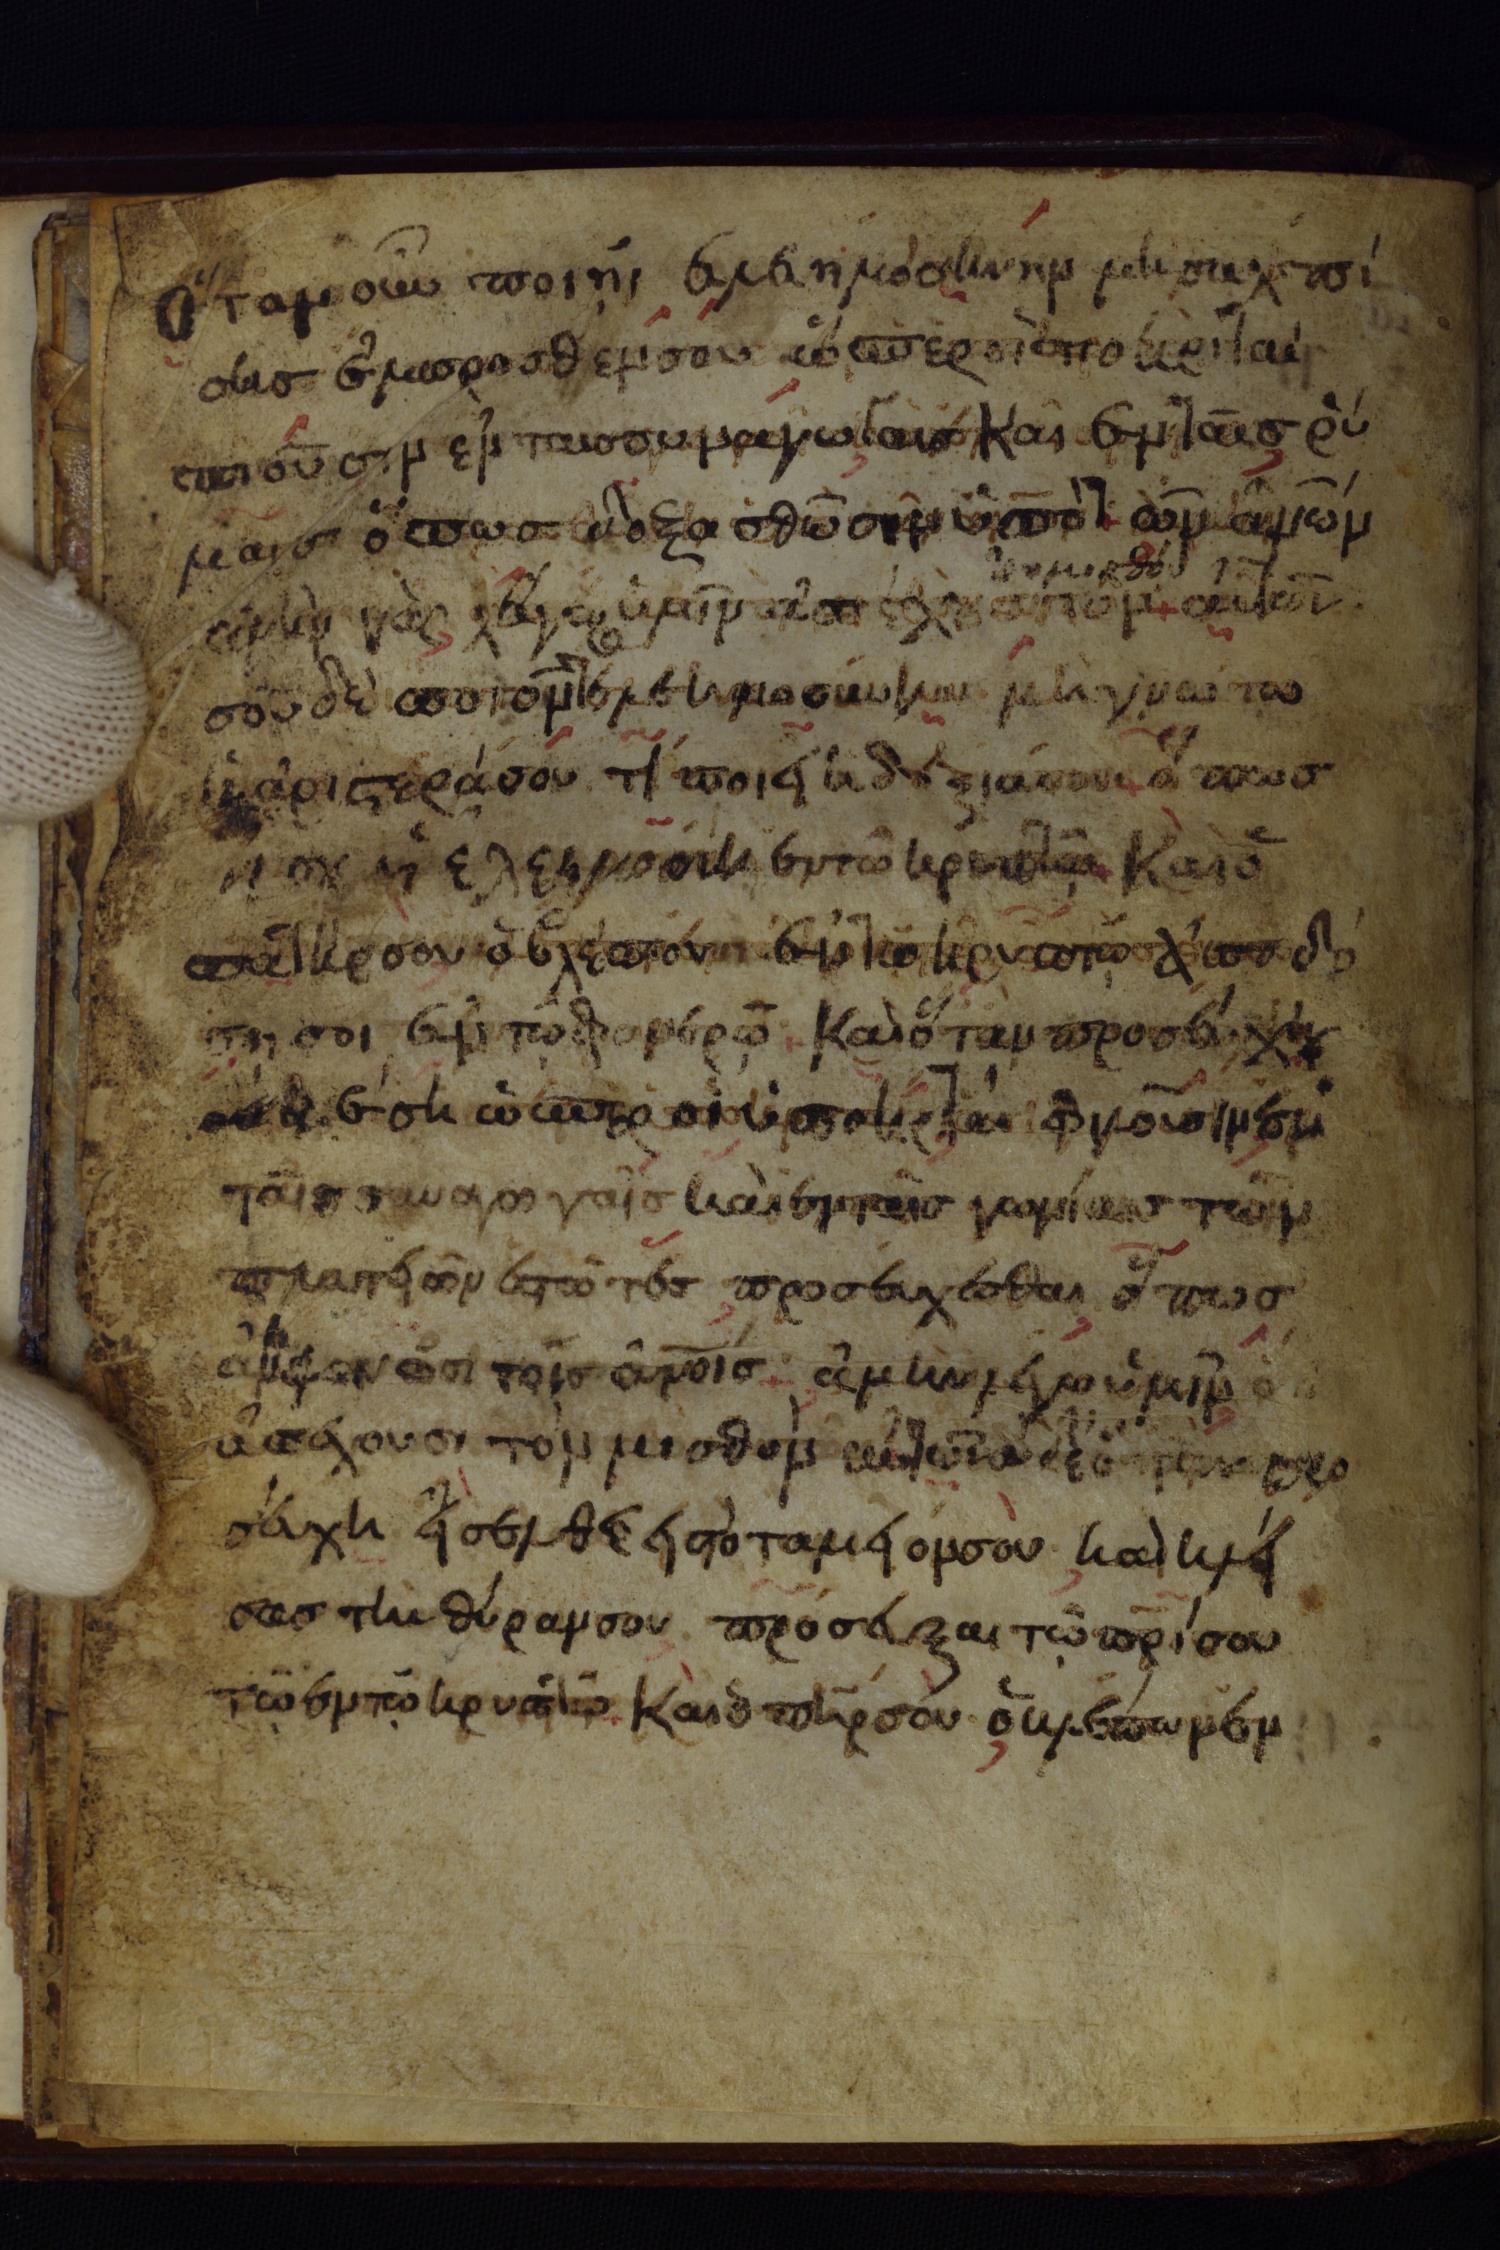 Ὅταν οὖν ποιῆι ἐλεημοσύνην μὴ σαλπί
σης ἔμπροσθέν σου ὥσπερ οἱ ὑποκριταὶ
ποιοῦσιν ἐν ταῖς συναγωγαῖς καὶ ἐν ταῖς ρύ
μαις ὅπως δοξασθῶσιν ὑπὸ τῶν ἀν̅ων
ἀμὴν λέγω ὑμῖν ἀπέχουσιν τὸν μισθὸν αὐτῶν
σοῦ δὲ ποιοῦντος ἐλεημοσύνην μὴ γνώτω
ἡ ἀριστερά σου τί ποιεῖ ἡ δεξιά σου ὅπως
ἡ ἐλεημοσύνη ἐν τῶ κρυπτῶ καὶ ὁ
πατήρ σου ὁ βλέπων ἐν τῶ κρυπτῶ ἀποδώ
σοι ἐν τῶ φανερῶ καὶ ὅταν προσεύχη
οὐκ ἔση ὥσπερ οἱ ὑποκριταὶ φιλοῦσιν ἐν
ταῖς συναγωγαῖς καὶ ἐν ταῖς γωνίαις τῶν
πλατειῶν ἑστῶτες προσεύχεσθαι ὅπως
ἂν φανῶσι τοῖς ἀν̅οις ἀμὴν λέγω ὑμῖν ὅτι
ἀπέχουσι τὸν μισθὸν αὐτῶν σὺ δὲ ὅταν προ
σεύχη εἴσελθε εἰς τὸ ταμεῖόν σου καὶ κλεί
σας τὴν θύραν σου πρόσευξαι τῶ πρ̅ί σου
τῶ ἐν τῶ κρυπτῶ καὶ ὁ πη̅ρ σου ὁ βλέπων ἐν